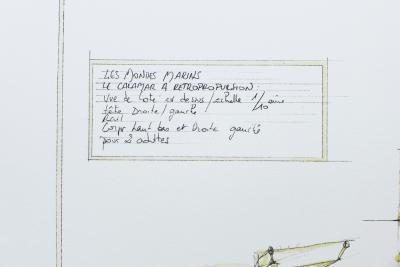 LES MONDES MARINS
LE CALAMAR A RETROPROPULSION :
Vue de cote et dessus / echelle 1/10 eme
tête Droite / gauche
Corps haut bas et Droite gauche
pour 2 adultes